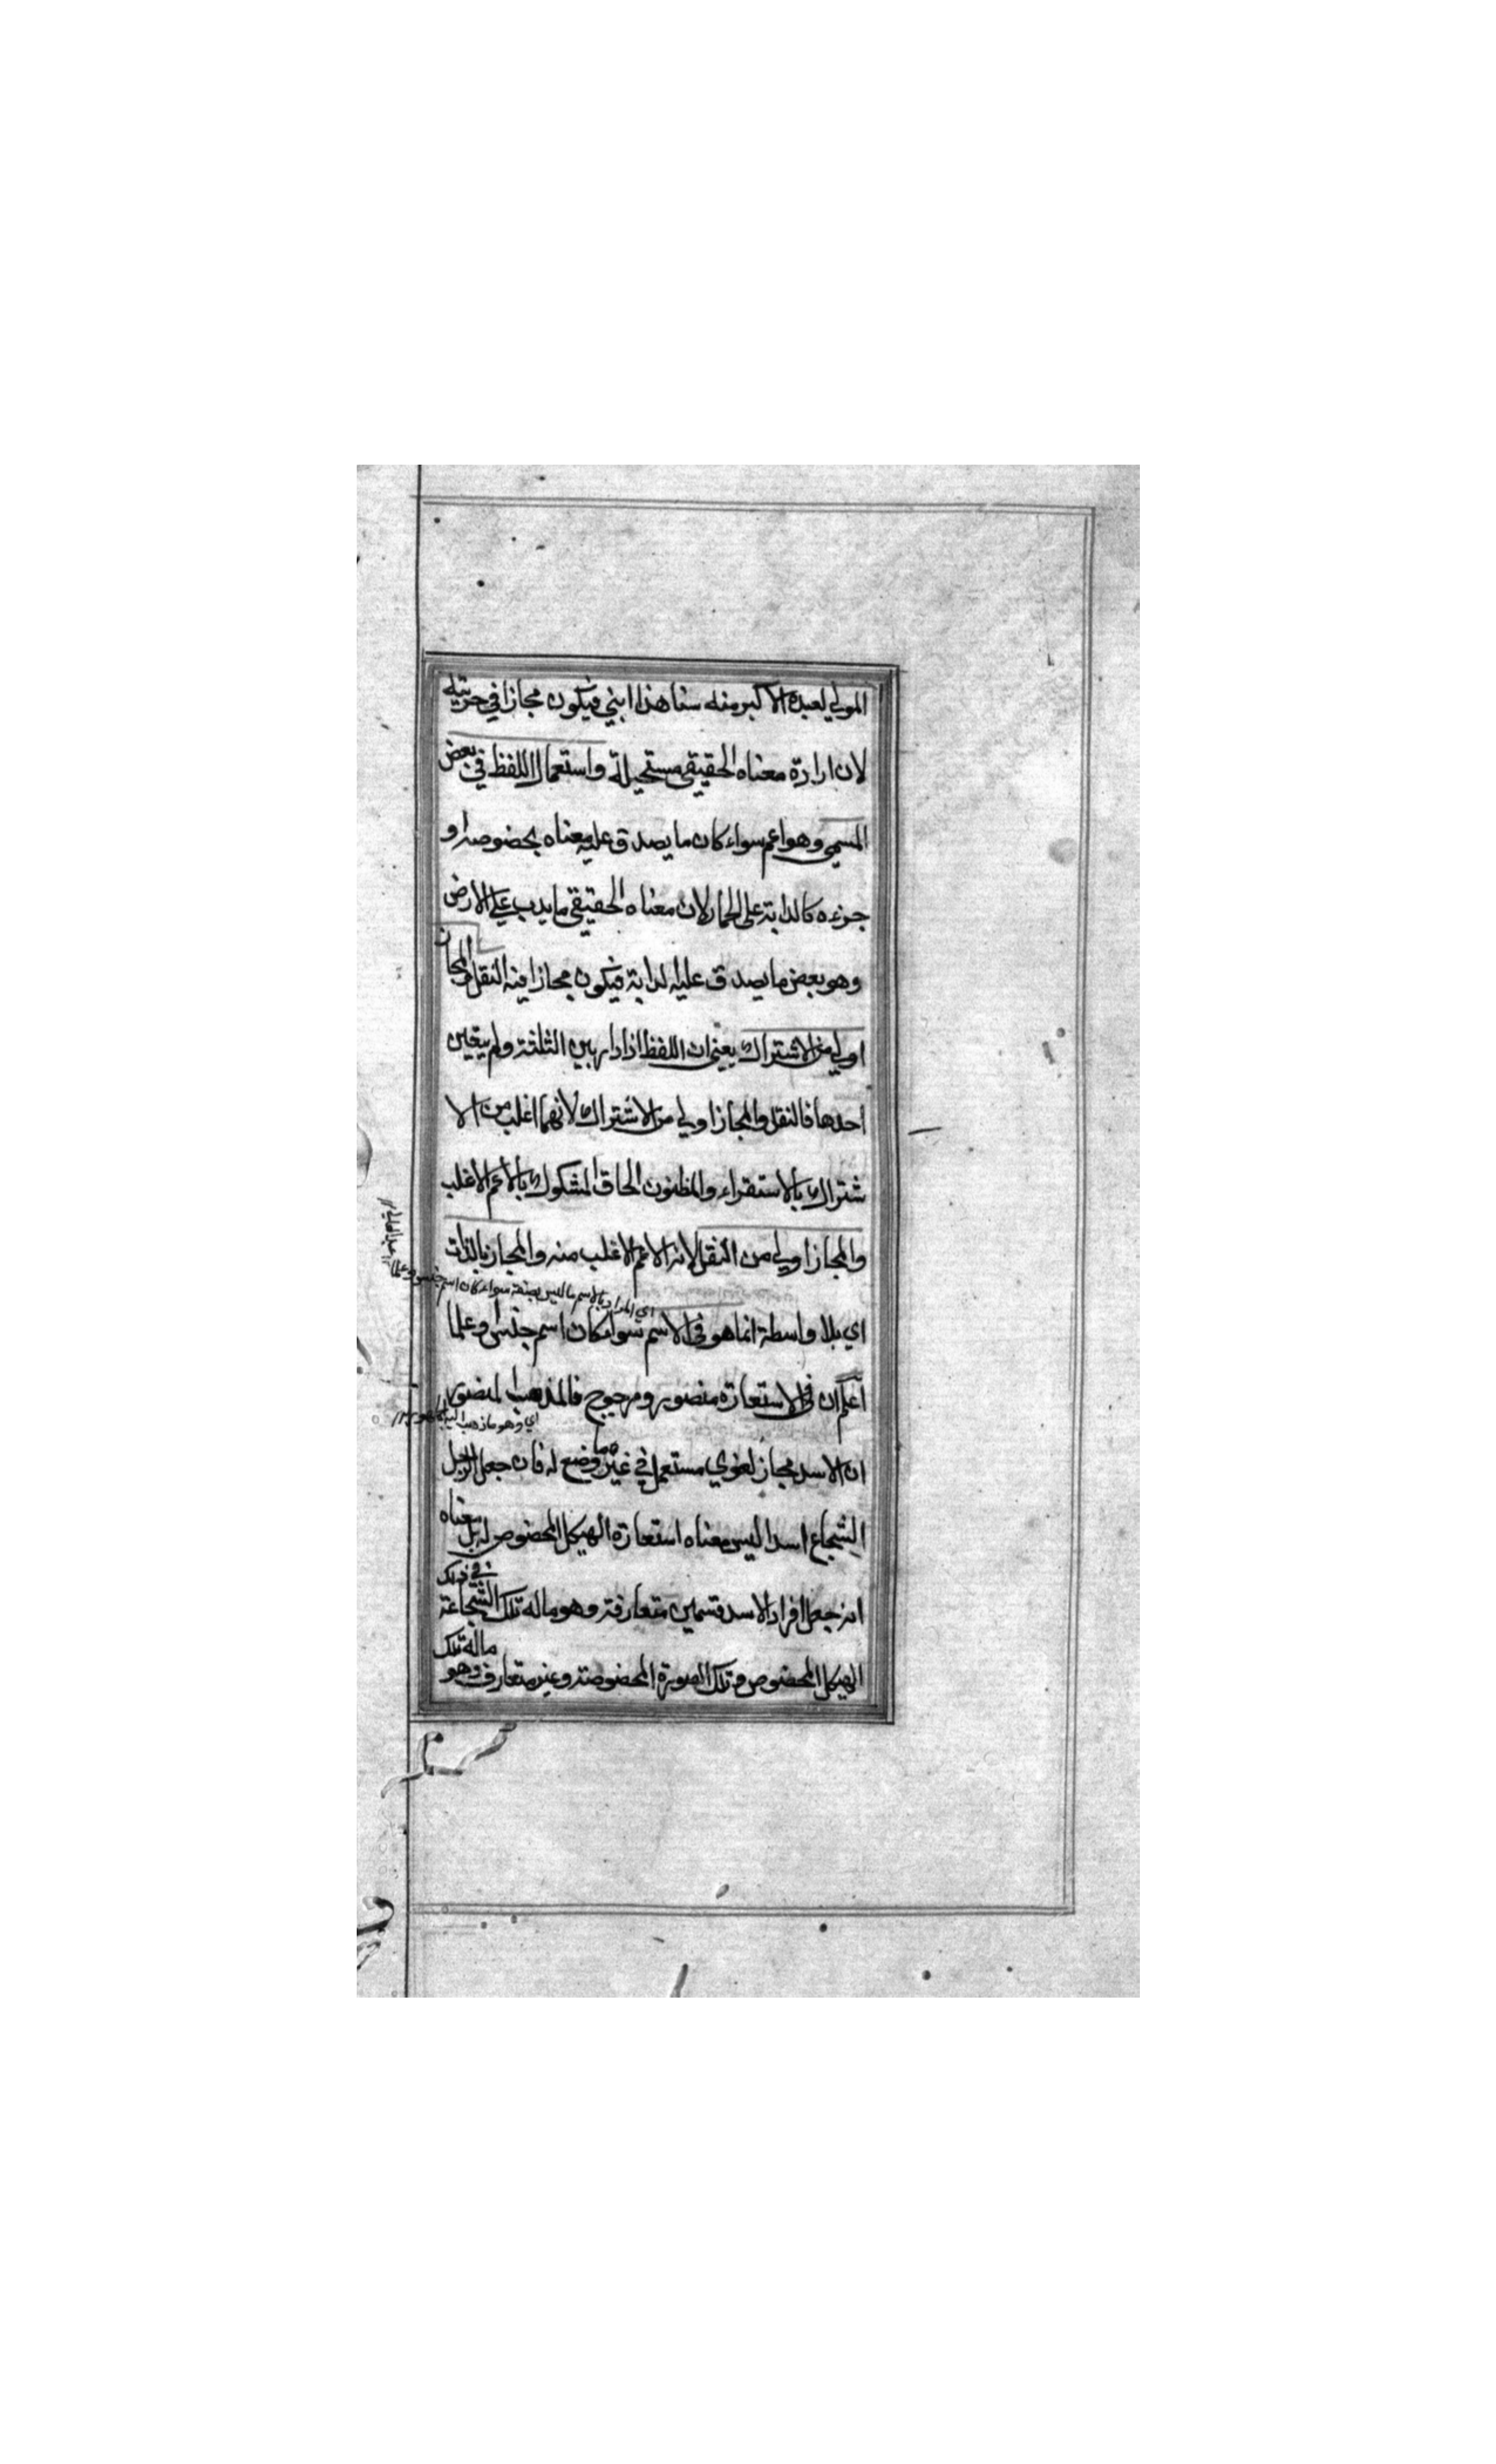 المولي لعبده الاكبر منه سنا هذا ابني فيكون مجازا في حريته
لان ارادة معناه الحقيقي مستحيلة واستعمال اللفظ في بعض
المسمي وهو اعم سواء كان ما يصدق عليه معناه بخصوصه او
جزءه كالدابة على الحمار لان معناه الحقيقي ما يدب علي الارض
وهو بعض ما يصدق عليه الدابة فيكون مجازا فيه النقل والمجاز
اولي من الاشتراك يعني ان اللفظ اذا دار بين الثلثة ولم يتعين
احدها فالنقل والمجاز اولي من الاشتراك لانهما اغلب من الا
شتراك بالاستقراء والمظنون الحاق المشكوك بالاعم الاغلب
والمجاز اولي من النقل لانه الاعم الاغلب منه والمجاز بالذات
اي المراد بالاسم ما ليس بصفة سواء كان اسم جنس او علما
اي بلا واسطة انما هو في الاسم سواء كان اسم جنس او علما
اعلم ان في الاستعارة منصور ومرجوح فالمذهب المنصور
اي وهو ما ذهب اليه الجمهور
ان الاسد مجاز لغوي مستعمل في غير ما وضع له فان جعل الرجل
الشجاع اسدا ليس معناه استعارة الهيكل المخصوص له بل معناه
انه جعل افراد الاسد قسمين متعارفة وهو ماله تلك الشجاعة في ذلك
الهيكل المخصوص وتلك الصورة المخصوصة وغير متعارف وهو ماله تلك